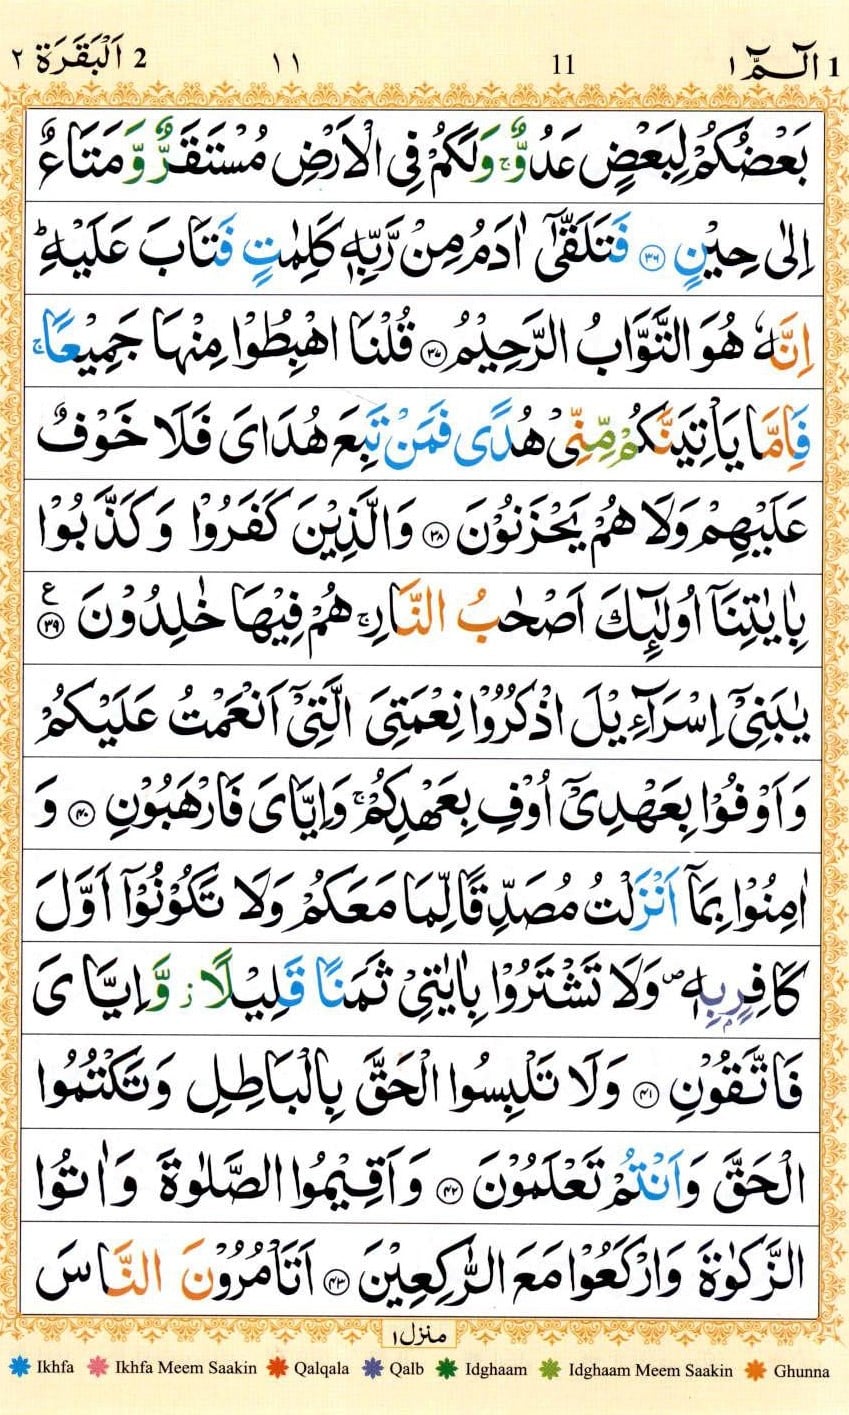 الٓـمّٓ ١ 1 11 ١١ 2 اَلْبَقَرَة ٢
بَعْضُكُمْ لِبَعْضٍ عَدُوٌّ ۚ وَلَكُمْ فِى الْاَرْضِ مُسْتَقَرٌّ وَّ مَتَاعٌ
اِلٰى حِيْنٍ ۝٣٦ فَتَلَقّٰٓى اٰدَمُ مِنْ رَّبِّهٖ كَلِمٰتٍ فَتَابَ عَلَيْهِ ؕ
اِنَّهٗ هُوَ التَّوَّابُ الرَّحِيْمُ ۝٣٧ قُلْنَا اهْبِطُوْا مِنْهَا جَمِيْعًا ۚ
فَاِمَّا يَاْتِيَنَّكُمْ مِّنِّىْ هُدًى فَمَنْ تَبِعَ هُدَاىَ فَلَا خَوْفٌ
عَلَيْهِمْ وَلَا هُمْ يَحْزَنُوْنَ ۝٣٨ وَالَّذِيْنَ كَفَرُوْا وَكَذَّبُوْا
بِاٰيٰتِنَآ اُولٰٓئِكَ اَصْحٰبُ النَّارِ ۚ هُمْ فِيْهَا خٰلِدُوْنَ ۝٣٩ ع
يٰبَنِىْٓ اِسْرَآءِيْلَ اذْكُرُوْا نِعْمَتِىَ الَّتِىْٓ اَنْعَمْتُ عَلَيْكُمْ
وَاَوْفُوْا بِعَهْدِىْٓ اُوْفِ بِعَهْدِكُمْ ۚ وَاِيَّاىَ فَارْهَبُوْنِ ۝٤٠ وَ
اٰمِنُوْا بِمَآ اَنْزَلْتُ مُصَدِّقًا لِّمَا مَعَكُمْ وَلَا تَكُوْنُوْٓا اَوَّلَ
كَافِرٍۭ بِهٖ ۪ وَلَا تَشْتَرُوْا بِاٰيٰتِىْ ثَمَنًا قَلِيْلًا ز وَّاِيَّاىَ
فَاتَّقُوْنِ ۝٤١ وَلَا تَلْبِسُوا الْحَقَّ بِالْبَاطِلِ وَتَكْتُمُوا
الْحَقَّ وَاَنْتُمْ تَعْلَمُوْنَ ۝٤٢ وَاَقِيْمُوا الصَّلٰوةَ وَاٰتُوا
الزَّكٰوةَ وَارْكَعُوْا مَعَ الرّٰكِعِيْنَ ۝٤٣ اَتَاْمُرُوْنَ النَّاسَ
منزل ١
Ikhfa Ikhfa Meem Saakin Qalqala Qalb Idghaam Idghaam Meem Saakin Ghunna